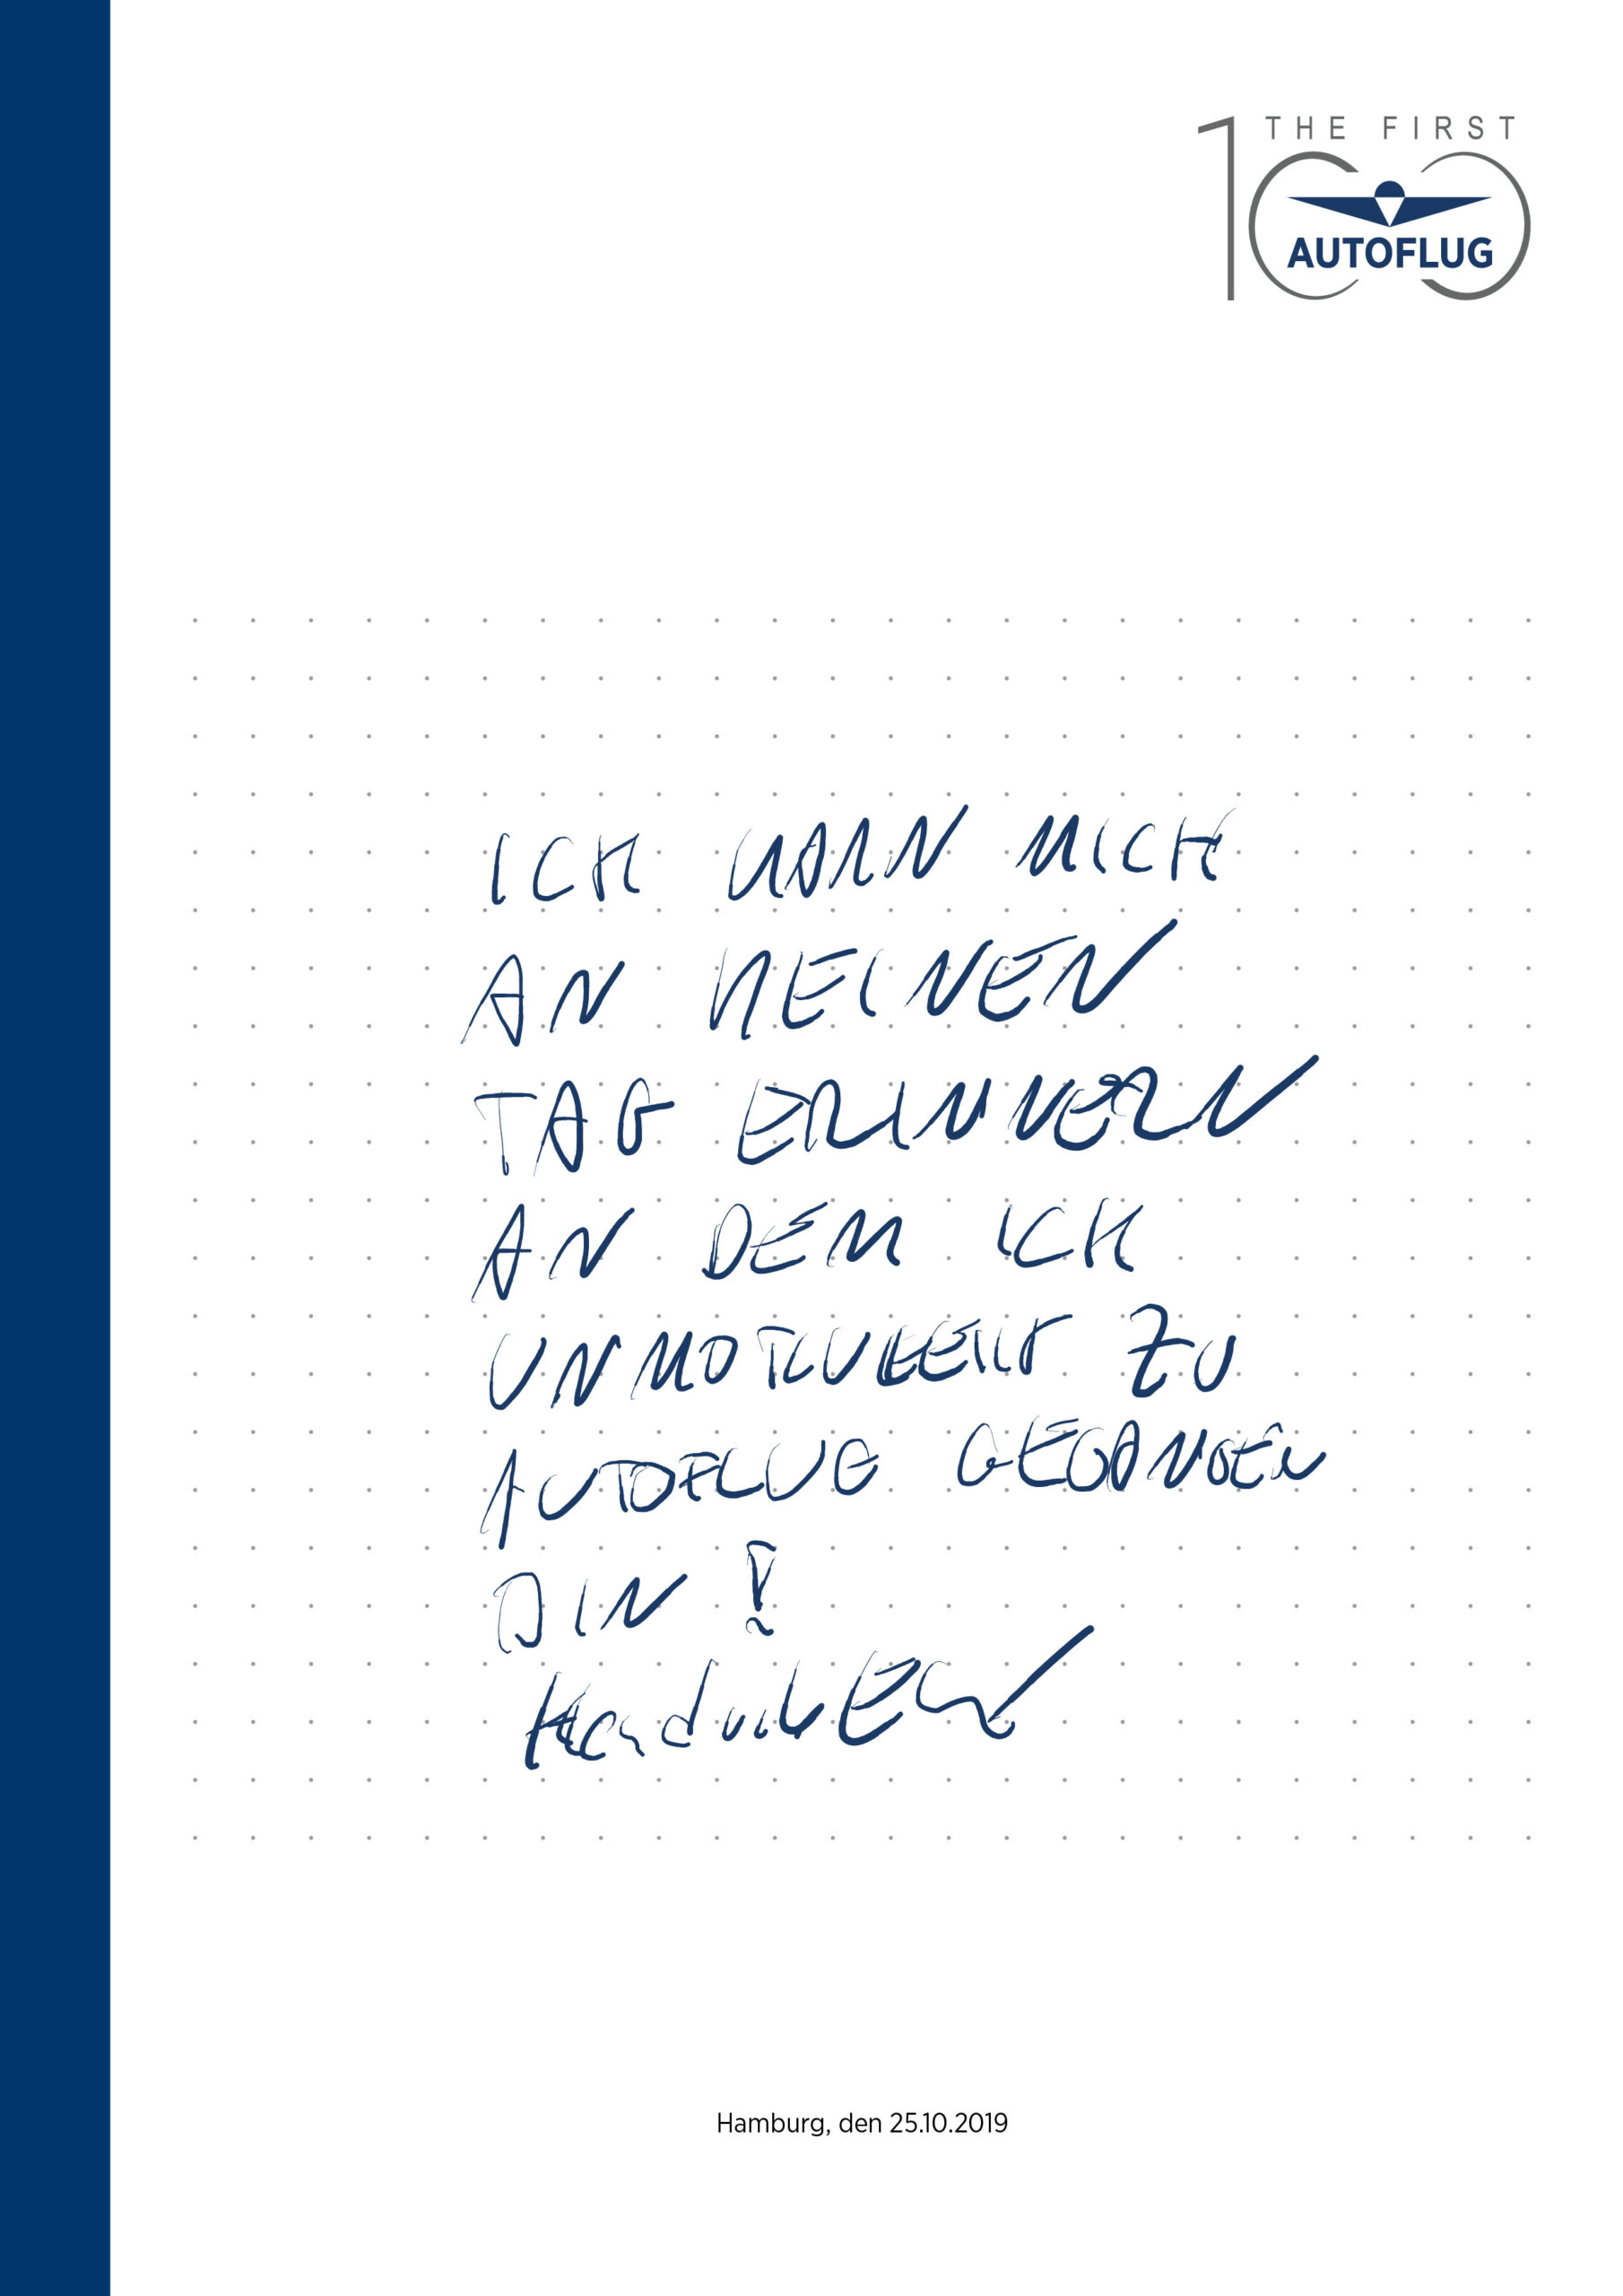 THE FIRST
100
AUTOFLUG
ICH KANN MICH
AN KEINEN
TAG ERINNERN
AN DEM ICH
UNMOTIVIERT ZU
AUTOFLUG GEGANGEN
BIN!
Hamburg, den 25.10.2019